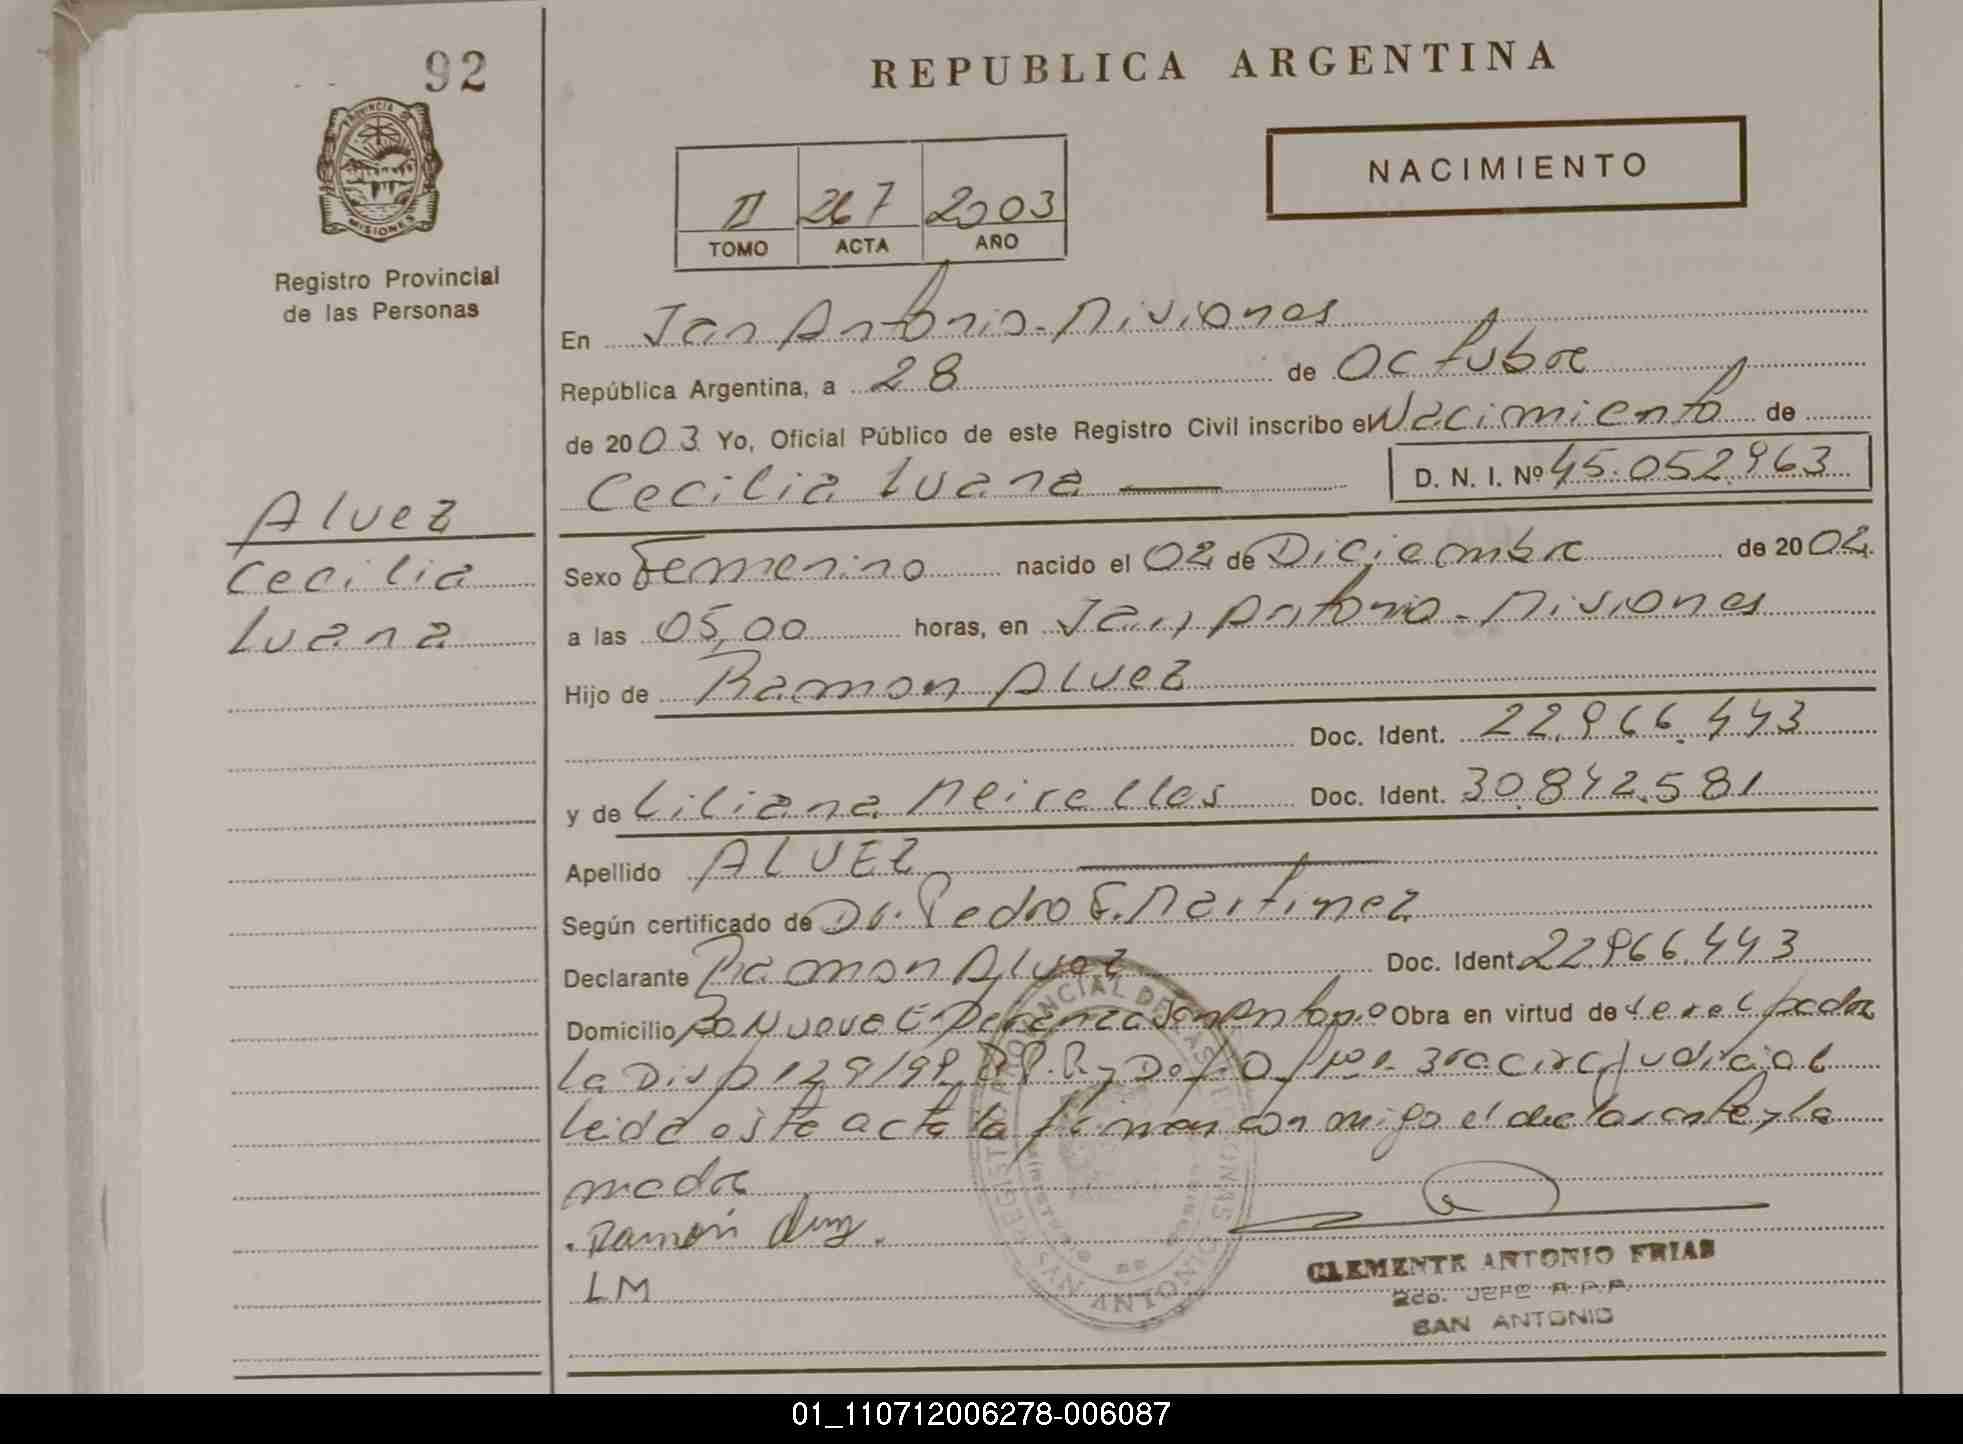 92
REPUBLICA ARGENTINA
PROVINCIA DE
MISIONES
Registro Provincial
de las Personas
NACIMIENTO
II 267 2003
TOMO ACTA AÑO
En San Antonio - Misiones
República Argentina, a 28 de Octubre
de 2003 Yo, Oficial Público de este Registro Civil inscribo el Nacimiento de
Cecilia Luana D. N. I. Nº 45.052.963
Alvez
Cecilia
Luana
Sexo Femenino nacido el 02 de Diciembre de 2002.
a las 05,00 horas, en San Antonio - Misiones
Hijo de Ramon Alvez
Doc. Ident. 22.966.443
y de Liliana Meirelles Doc. Ident. 30.842.581
Apellido ALVEZ
Según certificado de Dr. Pedro F. Martinez
Declarante Ramon Alvez Doc. Ident. 22.966.443
Domicilio Bo Nuevo E Peranza San Antonio Obra en virtud de ser el padre
La Disp 129/98 R.P.P. y Dof. O. 3ra circ judicial
leida este acta la firman con migo el declarante y la
madre
Ramon
LM
REGISTRO PROVINCIAL DE LAS PERSONAS
SAN ANTONIO
CLEMENTE ANTONIO FRIAS
2do. JEFE R.P.P.
SAN ANTONIO
01_110712006278-006087